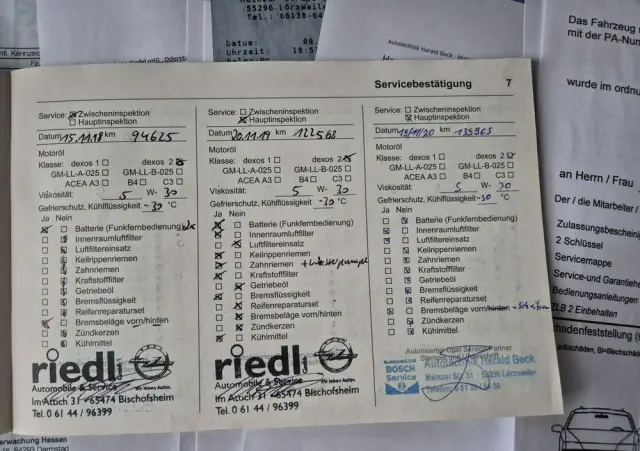 55296 Lörzweile
Tel.: 06138-64
Datum: 09
Uhrzeit: 18:5
Autotechnik Harald Beck
Das Fahrzeug
mit der PA-Num
wurde im ordnu
an Herrn / Frau
Der / die Mitarbeiter /
Zulassungsbescheini
2 Schlüssel
Servicemappe
Service-und Garantiehe
Bedienungsanleitungen
ZLB 2 Einbehalten
chadenfeststellung (s
Servicebestätigung 7
Service: Zwischeninspektion
Hauptinspektion
Datum 15.11.18 km 94625
Motoröl
Klasse: dexos 1 dexos 2
GM-LL-A-025 GM-LL-B-025
ACEA A3 B4 C3
Viskosität: 5 W- 30
Gefrierschutz, Kühlflüssigkeit -30 °C
Ja Nein
Batterie (Funkfernbedienung)
Innenraumluftfilter
Luftfiltereinsatz
Keilrippenriemen
Zahnriemen
Kraftstofffilter
Getriebeöl
Bremsflüssigkeit
Reifenreparaturset
Bremsbeläge vorn/hinten
Zündkerzen
Kühlmittel
riedl
Automobile & Service
Wir leben Autos.
Im Attich 31 · 65474 Bischofsheim
Tel. 0 61 44 / 96399
Service: Zwischeninspektion
Hauptinspektion
Datum 20.11.19 km 122568
Motoröl
Klasse: dexos 1 dexos 2
GM-LL-A-025 GM-LL-B-025
ACEA A3 B4 C3
Viskosität: 5 W- 30
Gefrierschutz, Kühlflüssigkeit -30 °C
Ja Nein
Batterie (Funkfernbedienung)
Innenraumluftfilter
Luftfiltereinsatz
Keilrippenriemen
Zahnriemen + Wasserpumpe
Kraftstofffilter
Getriebeöl
Bremsflüssigkeit
Reifenreparaturset
Bremsbeläge vorn/hinten
Zündkerzen
Kühlmittel
riedl
Automobile & Service
Wir leben Autos.
Im Attich 31 · 65474 Bischofsheim
Tel. 0 61 44 / 96399
Service: Zwischeninspektion
Hauptinspektion
Datum 19/11/20 km 139965
Motoröl
Klasse: dexos 1 dexos 2
GM-LL-A-025 GM-LL-B-025
ACEA A3 B4 C3
Viskosität: 5 W- 30
Gefrierschutz, Kühlflüssigkeit -30 °C
Ja Nein
Batterie (Funkfernbedienung)
Innenraumluftfilter
Luftfiltereinsatz
Keilrippenriemen
Zahnriemen
Kraftstofffilter
Getriebeöl
Bremsflüssigkeit
Reifenreparaturset
Bremsbeläge vorn/hinten
Zündkerzen
Kühlmittel
Autorisierter Opel Service Partner
BOSCH
Service
Autotechnik Harald Beck
Mainzer Str. 31 · 55296 Lörzweiler
erwachung Hessen
64293 Darmstad